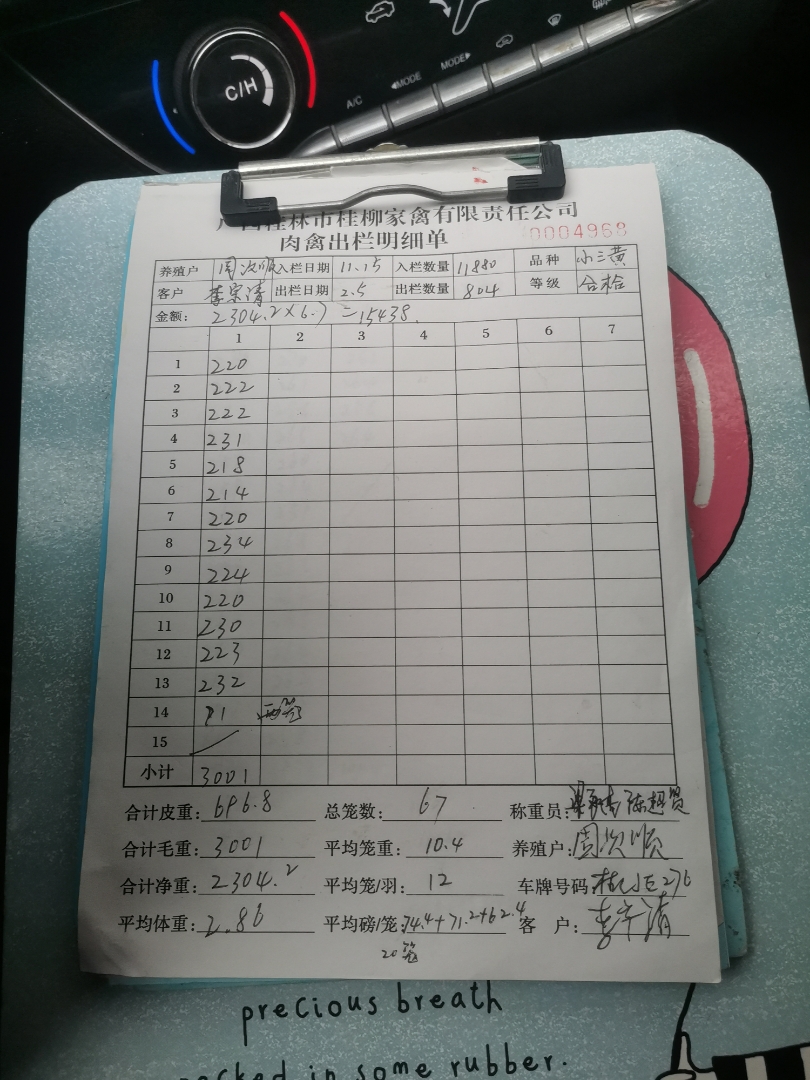 C/H
A/C ◀MODE MODE▶
广西桂林市桂柳家禽有限责任公司
肉禽出栏明细单 0004968
养殖户 周次顺 入栏日期 11.15 入栏数量 11880 品种 小三黄
客户 李宗清 出栏日期 2.5 出栏数量 804 等级 合格
金额: 2304.2×6.7=15438.
1 2 3 4 5 6 7
1 220
2 222
3 222
4 231
5 218
6 214
7 220
8 234
9 224
10 220
11 230
12 223
13 232
14 91 两笼
15
小计 3001
合计皮重: 696.8 总笼数: 67 称重员: 陈超贤
合计毛重: 3001 平均笼重: 10.4 养殖户: 周次顺
合计净重: 2304.2 平均笼/羽: 12 车牌号码
平均体重: 2.86 平均磅/笼: 74.4+71.2+62.4 客 户: 李宗清
20笼
precious breath
in some rubber.